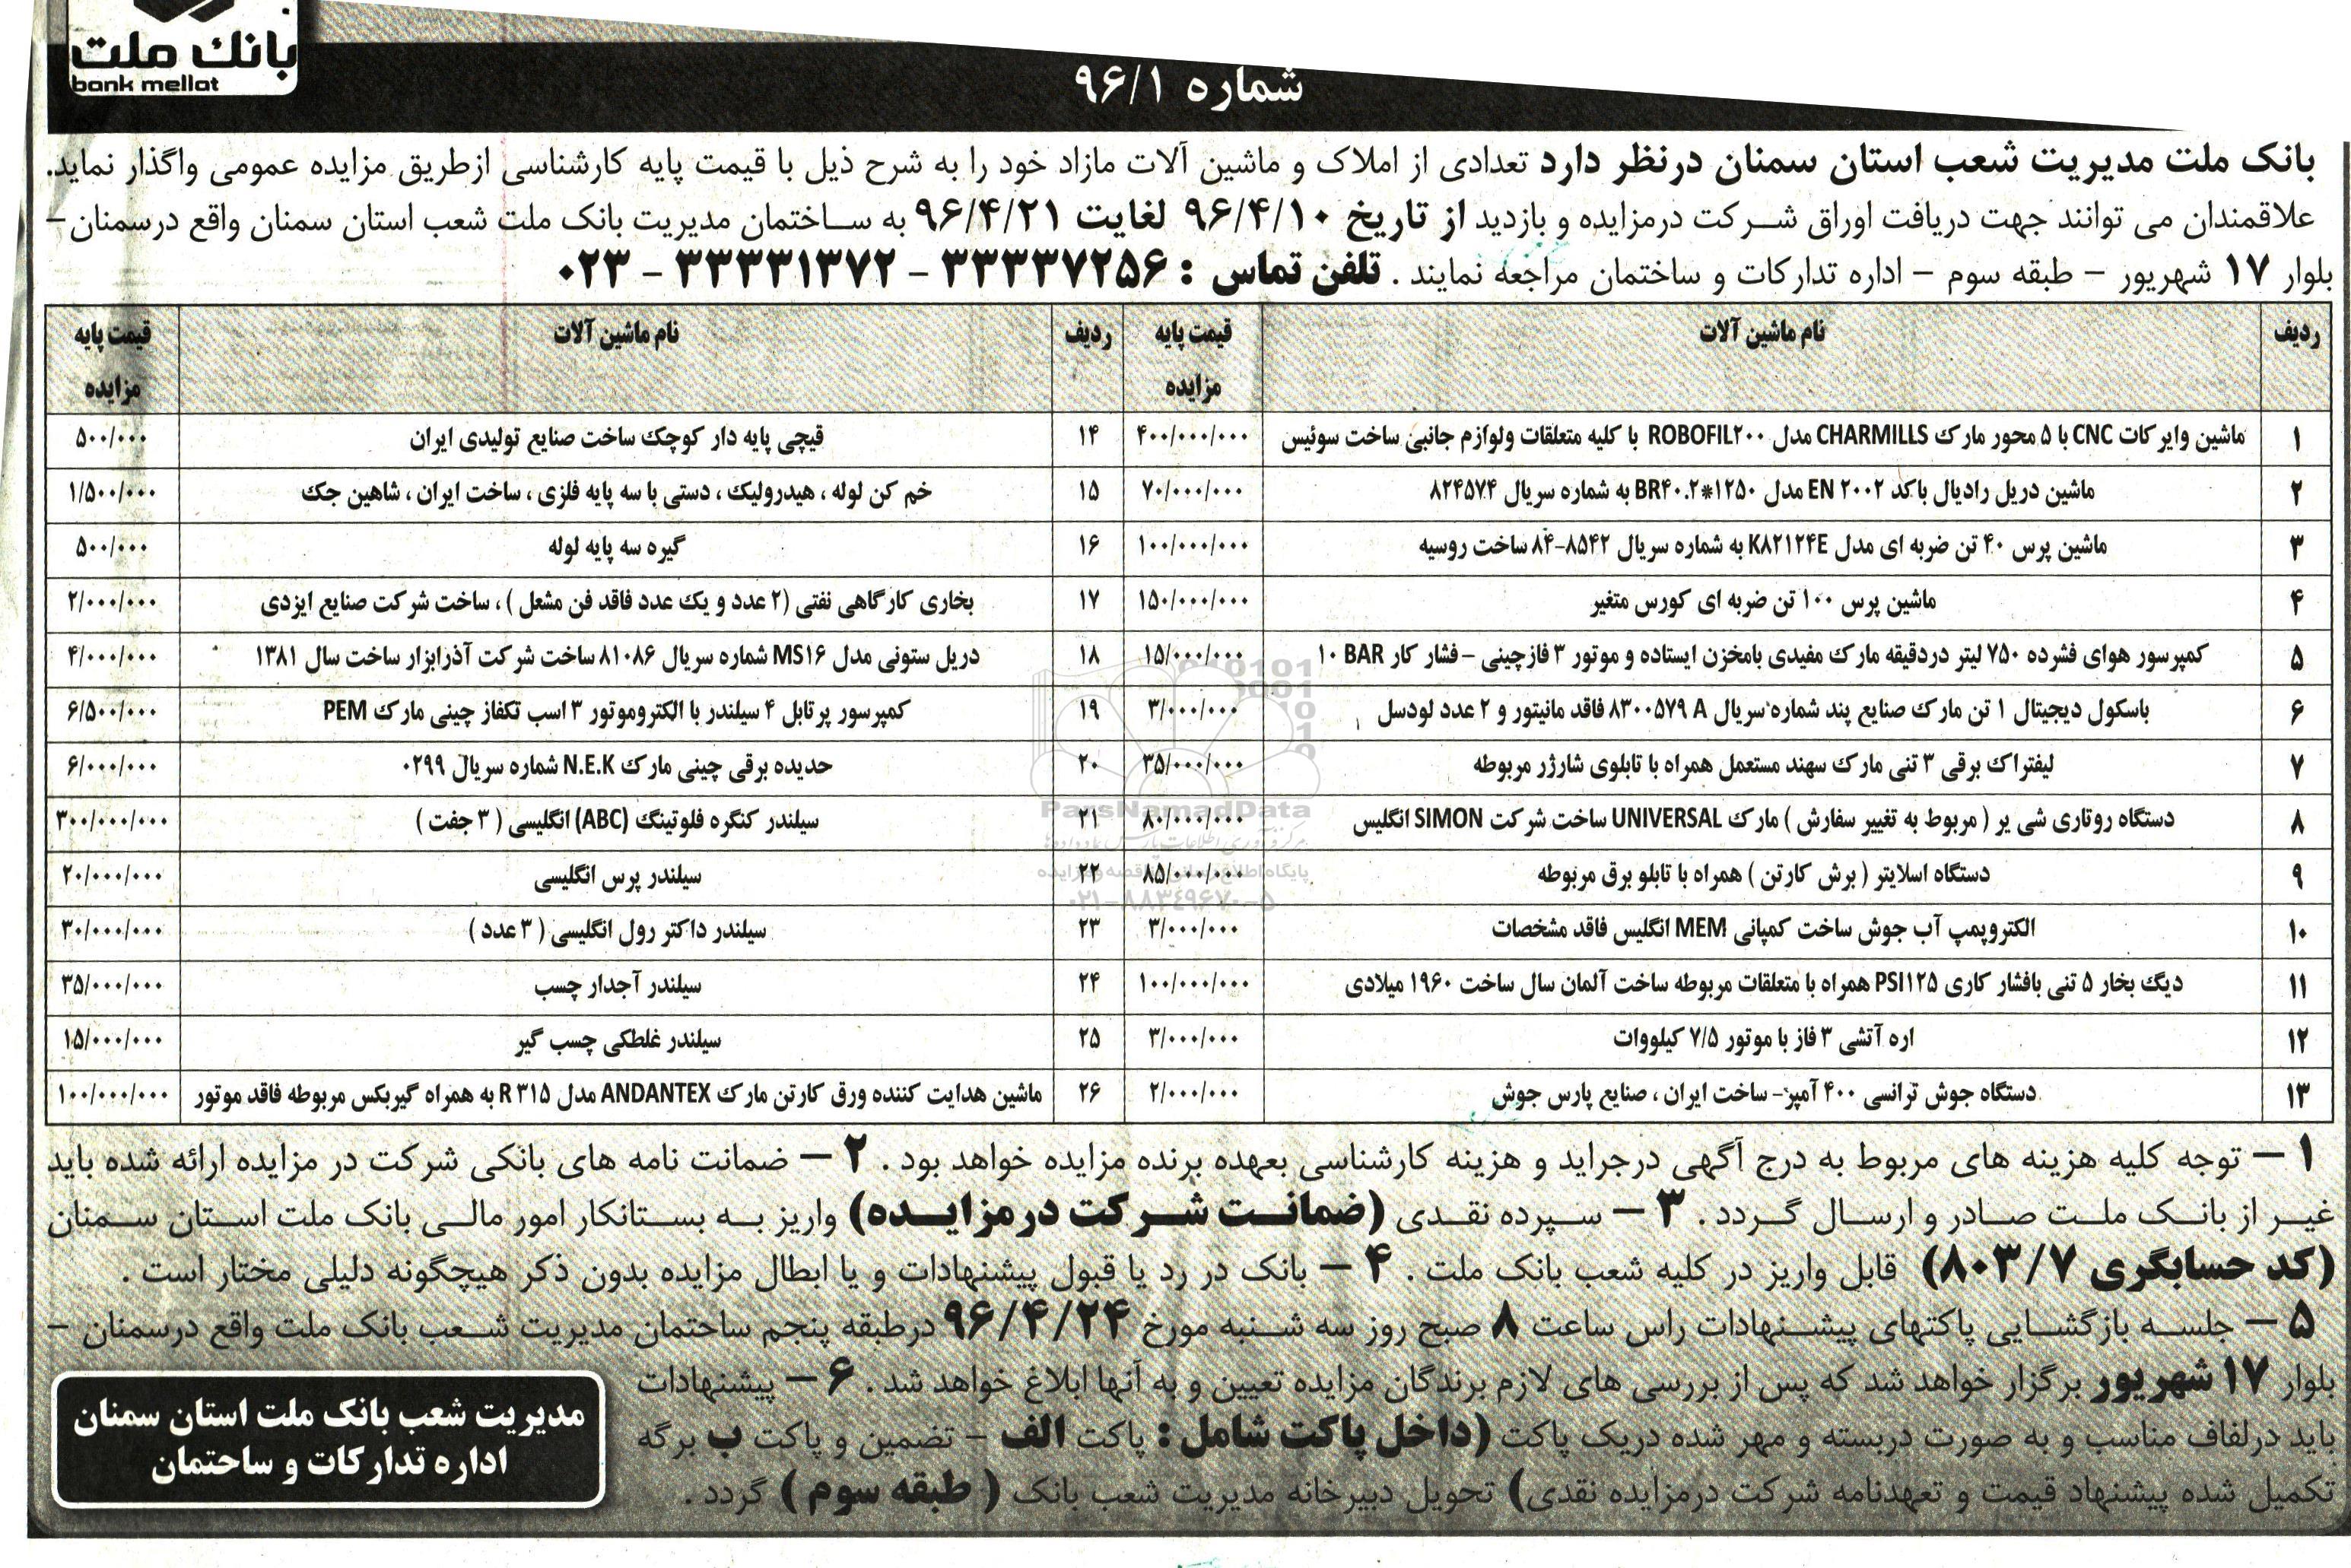 بانک ملت
bank mellat
شماره ۹۶/۱
بانک ملت مدیریت شعب استان سمنان درنظر دارد تعدادی از املاک و ماشین آلات مازاد خود را به شرح ذیل با قیمت پایه کارشناسی ازطریق مزایده عمومی واگذار نماید.
علاقمندان می توانند جهت دریافت اوراق شرکت درمزایده و بازدید از تاریخ ۹۶/۴/۱۰ لغایت ۹۶/۴/۲۱ به ساختمان مدیریت بانک ملت شعب استان سمنان واقع درسمنان -
بلوار ۱۷ شهریور - طبقه سوم - اداره تدارکات و ساختمان مراجعه نمایند . تلفن تماس : ۳۳۳۳۷۲۵۶ - ۳۳۳۳۱۳۷۲ - ۰۲۳
ردیف نام ماشین آلات قیمت پایه مزایده ردیف نام ماشین آلات قیمت پایه مزایده
۱ ماشین وایر کات CNC با ۵ محور مارک CHARMILLS مدل ROBOFIL۲۰۰ با کلیه متعلقات ولوازم جانبی ساخت سوئیس ۴۰۰/۰۰۰/۰۰۰ ۱۴ قیچی پایه دار کوچک ساخت صنایع تولیدی ایران ۵۰۰/۰۰۰
۲ ماشین دریل رادیال باکد EN ۲۰۰۲ مدل BR۴۰.۲*۱۲۵۰ به شماره سریال ۸۲۴۵۷۴ ۷۰/۰۰۰/۰۰۰ ۱۵ خم کن لوله ، هیدرولیک ، دستی با سه پایه فلزی ، ساخت ایران ، شاهین جک ۱/۵۰۰/۰۰۰
۳ ماشین پرس ۴۰ تن ضربه ای مدل K۸۲۱۲۴E به شماره سریال ۸۵۴۲-۸۴ ساخت روسیه ۱۰۰/۰۰۰/۰۰۰ ۱۶ گیره سه پایه لوله ۵۰۰/۰۰۰
۴ ماشین پرس ۱۰۰ تن ضربه ای کورس متغیر ۱۵۰/۰۰۰/۰۰۰ ۱۷ بخاری کارگاهی نفتی (۲ عدد و یک عدد فاقد فن مشعل ) ، ساخت شرکت صنایع ایزدی ۲/۰۰۰/۰۰۰
۵ کمپرسور هوای فشرده ۷۵۰ لیتر دردقیقه مارک مفیدی بامخزن ایستاده و موتور ۳ فازچینی - فشار کار ۱۰ BAR ۱۵/۰۰۰/۰۰۰ ۱۸ دریل ستونی مدل MS۱۶ شماره سریال ۸۱۰۸۶ ساخت شرکت آذرابزار ساخت سال ۱۳۸۱ ۴/۰۰۰/۰۰۰
۶ باسکول دیجیتال ۱ تن مارک صنایع پند شماره سریال ۸۳۰۰۵۷۹ A فاقد مانیتور و ۲ عدد لودسل ۳/۰۰۰/۰۰۰ ۱۹ کمپرسور پرتابل ۴ سیلندر با الکتروموتور ۳ اسب تکفاز چینی مارک PEM ۶/۵۰۰/۰۰۰
۷ لیفتراک برقی ۳ تنی مارک سهند مستعمل همراه با تابلوی شارژر مربوطه ۳۵/۰۰۰/۰۰۰ ۲۰ حدیده برقی چینی مارک N.E.K شماره سریال ۰۲۹۹ ۶/۰۰۰/۰۰۰
۸ دستگاه روتاری شی یر ( مربوط به تغییر سفارش ) مارک UNIVERSAL ساخت شرکت SIMON انگلیس ۸۰/۰۰۰/۰۰۰ ۲۱ سیلندر کنگره فلوتینگ (ABC) انگلیسی ( ۳ جفت ) ۳۰۰/۰۰۰/۰۰۰
۹ دستگاه اسلایتر ( برش کارتن ) همراه با تابلو برق مربوطه ۸۵/۰۰۰/۰۰۰ ۲۲ سیلندر پرس انگلیسی ۲۰/۰۰۰/۰۰۰
۱۰ الکتروپمپ آب جوش ساخت کمپانی MEM انگلیس فاقد مشخصات ۳/۰۰۰/۰۰۰ ۲۳ سیلندر داکتر رول انگلیسی ( ۳ عدد ) ۳۰/۰۰۰/۰۰۰
۱۱ دیگ بخار ۵ تنی بافشار کاری PSI۱۲۵ همراه با متعلقات مربوطه ساخت آلمان سال ساخت ۱۹۶۰ میلادی ۱۰۰/۰۰۰/۰۰۰ ۲۴ سیلندر آجدار چسب ۳۵/۰۰۰/۰۰۰
۱۲ اره آتشی ۳ فاز با موتور ۷/۵ کیلووات ۳/۰۰۰/۰۰۰ ۲۵ سیلندر غلطکی چسب گیر ۱۵/۰۰۰/۰۰۰
۱۳ دستگاه جوش ترانسی ۴۰۰ آمپر- ساخت ایران ، صنایع پارس جوش ۲/۰۰۰/۰۰۰ ۲۶ ماشین هدایت کننده ورق کارتن مارک ANDANTEX مدل R ۳۱۵ به همراه گیربکس مربوطه فاقد موتور ۱۰۰/۰۰۰/۰۰۰
ParsNamadData
۰۲۱-۸۸۳۴۹۶۷۰-۵
۱ - توجه کلیه هزینه های مربوط به درج آگهی درجراید و هزینه کارشناسی بعهده برنده مزایده خواهد بود . ۲ - ضمانت نامه های بانکی شرکت در مزایده ارائه شده باید
غیر از بانک ملت صادر و ارسال گردد . ۳ - سپرده نقدی (ضمانت شرکت درمزایده) واریز به بستانکار امور مالی بانک ملت استان سمنان
(کد حسابگری ۸۰۳/۷) قابل واریز در کلیه شعب بانک ملت . ۴ - بانک در رد یا قبول پیشنهادات و یا ابطال مزایده بدون ذکر هیچگونه دلیلی مختار است .
۵ - جلسه بازگشایی پاکتهای پیشنهادات راس ساعت ۸ صبح روز سه شنبه مورخ ۹۶/۴/۲۴ درطبقه پنجم ساختمان مدیریت شعب بانک ملت واقع درسمنان -
بلوار ۱۷ شهریور برگزار خواهد شد که پس از بررسی های لازم برندگان مزایده تعیین و به آنها ابلاغ خواهد شد . ۶ - پیشنهادات
باید درلفاف مناسب و به صورت دربسته و مهر شده دریک پاکت (داخل پاکت شامل : پاکت الف - تضمین و پاکت ب برگه
تکمیل شده پیشنهاد قیمت و تعهدنامه شرکت درمزایده نقدی) تحویل دبیرخانه مدیریت شعب بانک ( طبقه سوم ) گردد .
مدیریت شعب بانک ملت استان سمنان
اداره تدارکات و ساختمان